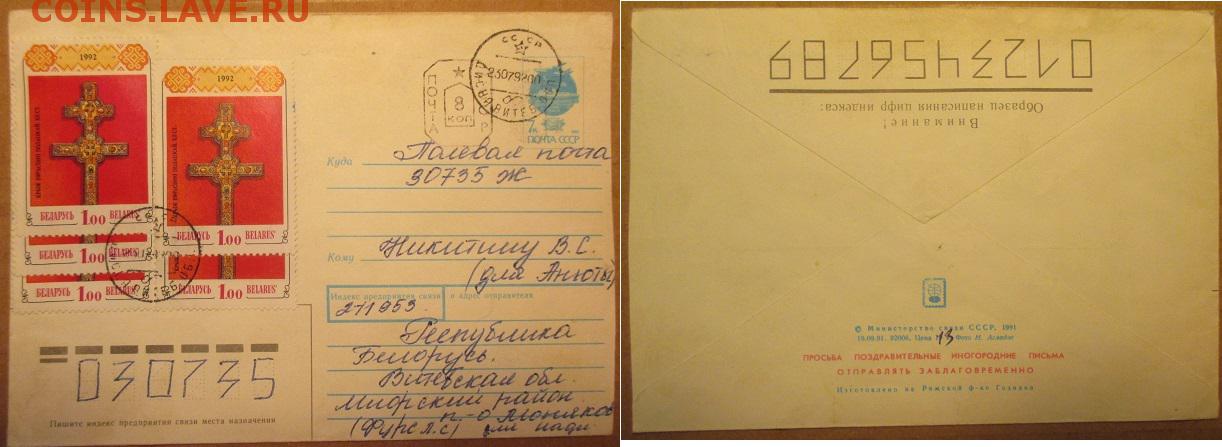 COINS.LAVE.RU
1992
БЕЛАРУСЬ 1.00 BELARUS'
1992
БЕЛАРУСЬ 1.00 BELARUS'
БЕЛАРУСЬ 1.00 BELARUS'
БЕЛАРУСЬ 1.00 BELARUS'
БЕЛАРУСЬ 1.00 BELARUS'
ПОЧТА
8
КОП
СССР
7к
ПОЧТА СССР
Куда Полевая почта
30735 Ж
Никитину В.С.
Кому (для Анюты)
Индекс предприятия связи и адрес отправителя
211953
Республика
Белорусь.
Витебская обл.
Миорский район
п-о
030735
Пишите индекс предприятия связи места назначения
0123456789
Образец написания цифр индекса:
Внимание!
© Министерство связи СССР, 1991
19.09.91. Цена 13 Фото Н.
ПРОСЬБА ПОЗДРАВИТЕЛЬНЫЕ ИНОГОРОДНИЕ ПИСЬМА
ОТПРАВЛЯТЬ ЗАБЛАГОВРЕМЕННО
Изготовлено на Рижской ф-ке Гознака